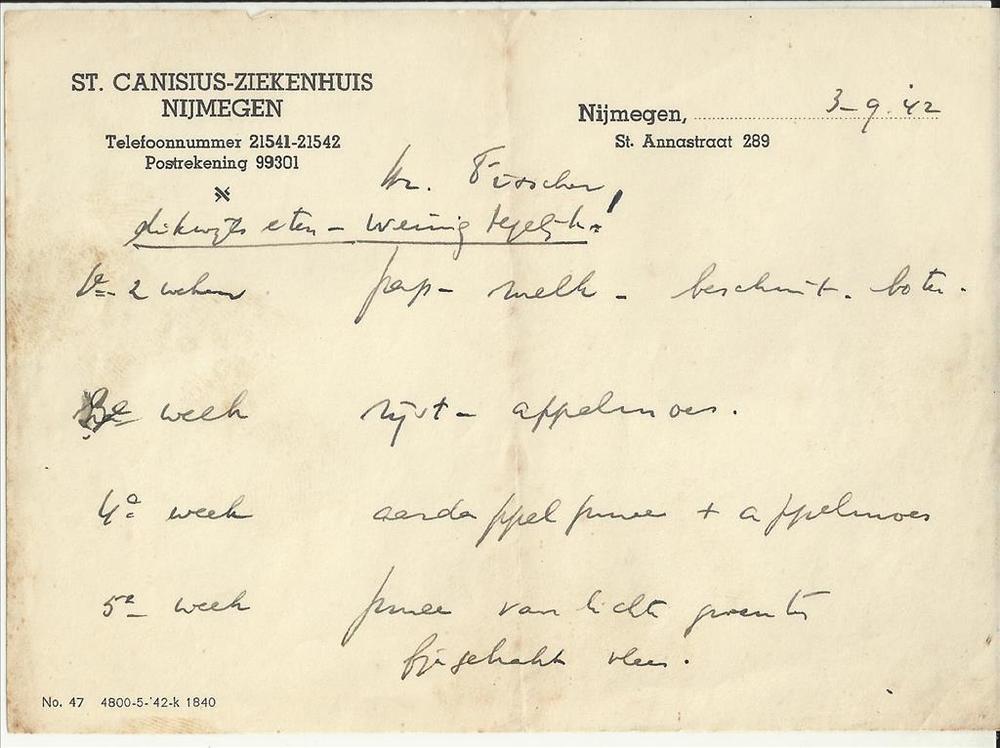 ST. CANISIUS-ZIEKENHUIS
NIJMEGEN
Telefoonnummer 21541-21542
Postrekening 99301
Nijmegen, 3-9-'42
St. Annastraat 289
Hr. Visscher
dikwijls eten - weinig tegelijk!
1e - 2 weken pap - melk - beschuit - boter.
3e week rijst - appelmoes.
4e week aardappelpuree + appelmoes
5e week puree van lichte groenten
fijngehakt vlees.
No. 47 4800-5-'42-k 1840